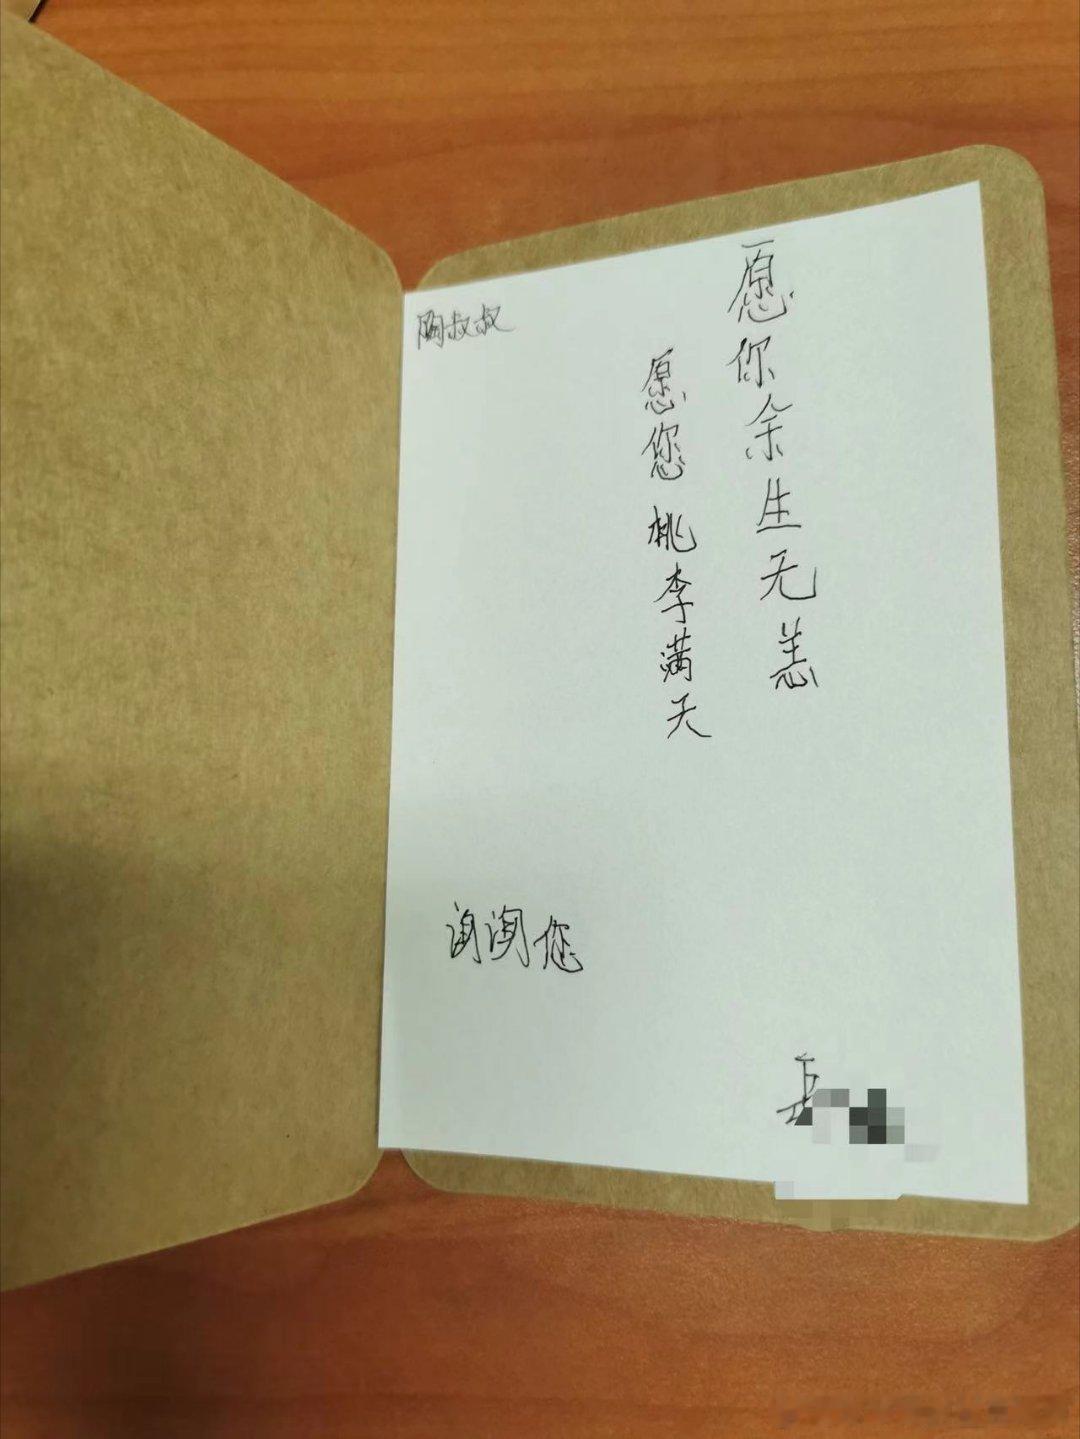 陶叔叔
愿你余生无恙
愿您桃李满天
谢谢您